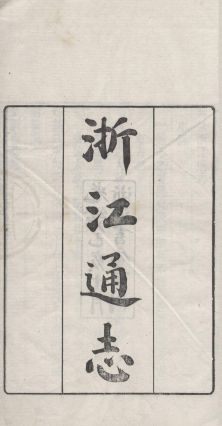 浙江通志